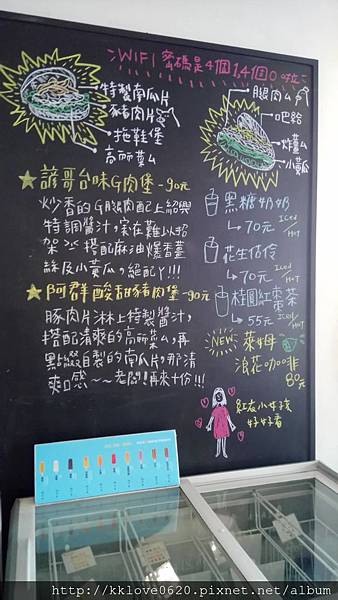 WIFI 密碼是4個1,4個0啦
特製南瓜片
豬肉片
拖鞋堡
高ㄌ菜ㄙ
腿肉ㄙ
吧給
炸薑ㄙ
小黃瓜
諺哥台味G肉堡-90元
炒香的G腿肉配上紹興
特調醬汁,實在難以招
架!!! 搭配麻油爆香薑
絲及小黃瓜,絕配丫!!!
阿群酸甜豬肉堡-90元
豚肉片淋上特製醬汁,
搭配清爽的高ㄌ菜ㄙ,再
點綴自製的南瓜片,那清
爽口感~~老闆!再來十份!!!
黑糖奶奶
↳70元 Iced/HOT
花生估伶
↳70元 Iced/HOT
桂圓紅棗茶
↳55元 Iced/HOT
NEW 萊姆
浪花咖啡
80元
紅衣小女孩
好好看
http://kklove0620.pixnet.net/album